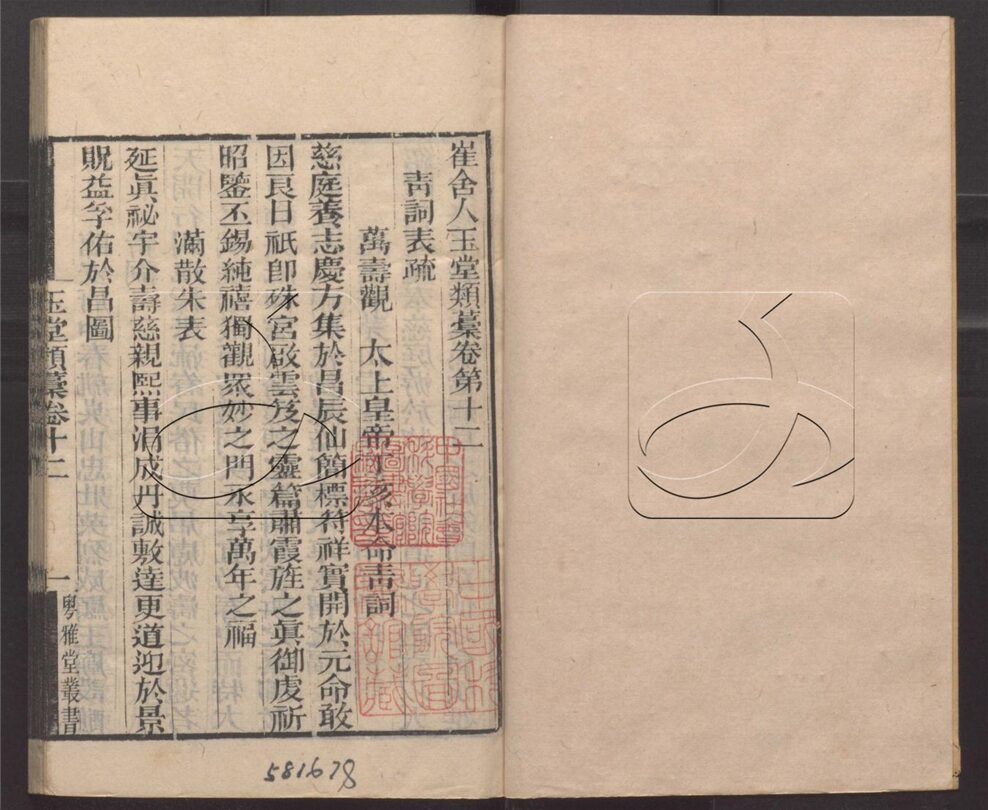 崔舍人玉堂類藁卷第十二
青詞表疏
萬壽觀　太上皇帝丁亥本命青詞
慈庭養志慶方集於昌辰仙簡標符祥實開於元命敢
因良日祇卽殊宮啟雲笈之靈篇肅霞旌之眞御虔祈
昭鑒丕錫純禧獨觀眾妙之門永享萬年之福
滿散朱表
延眞祕宇介壽慈親熙事涓成丹誠敷達更道迎於景
貺益孚佑於昌圖
玉堂類藁卷十二
一
粵雅堂叢書
581678